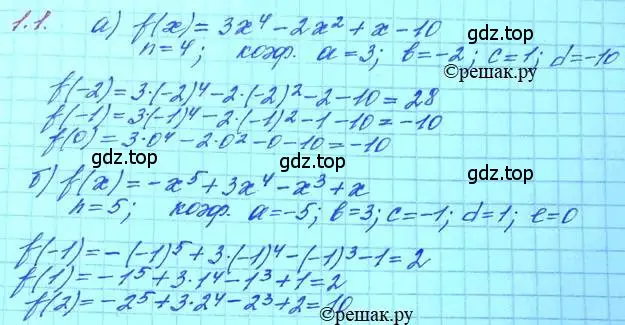 1.1. а) f(x) = 3x⁴ - 2x² + x - 10
n = 4; коэф. a = 3; b = -2; c = 1; d = -10
©решак.ру
f(-2) = 3·(-2)⁴ - 2·(-2)² - 2 - 10 = 28
f(-1) = 3(-1)⁴ - 2·(-1)² - 1 - 10 = -10
f(0) = 3·0⁴ - 2·0² - 0 - 10 = -10
gdz.top gdz.top gdz.top
б) f(x) = -x⁵ + 3x⁴ - x³ + x
n = 5; коэф. a = -5; b = 3; c = -1; d = 1; e = 0
f(-1) = -(-1)⁵ + 3·(-1)⁴ - (-1)³ - 1 = 2
f(1) = -1⁵ + 3·1⁴ - 1³ + 1 = 2
gdz.top gdz.top gdz.top
f(2) = -2⁵ + 3·2⁴ - 2³ + 2 = 10
©решак.ру